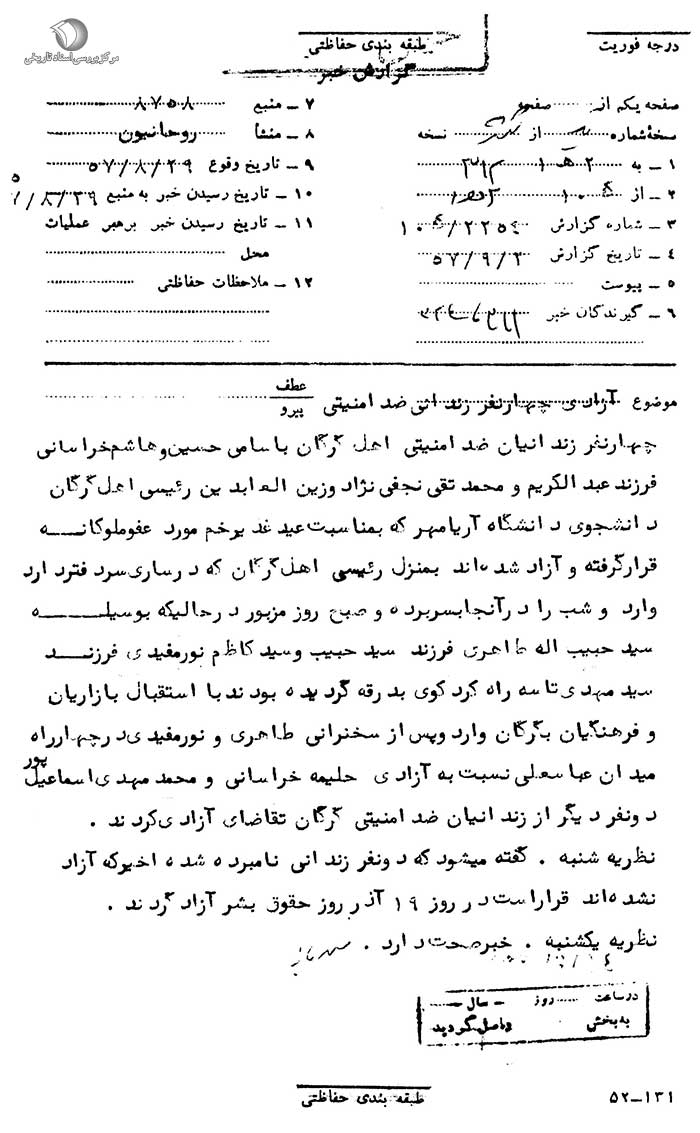 مرکز بررسی اسناد تاریخی
درجه فوریت
طبقه بندی حفاظتی
گزارش خبر
صفحه یکم از صفحه
نسخهٔ شماره از نسخه
۱ ـ به ۳۱۲
۲ ـ از
۳ ـ شماره گزارش ۲۲۵۴/
۴ ـ تاریخ گزارش ۵۷/۹/۲
۵ ـ پیوست
۶ ـ گیرندگان خبر
۷ ـ منبع ۸۷۵۸
۸ ـ منشأ روحانیون
۹ ـ تاریخ وقوع ۵۷/۸/۲۹
۱۰ ـ تاریخ رسیدن خبر به منبع ۵۷/۸/۲۹
۱۱ ـ تاریخ رسیدن خبر برهبر عملیات
محل
۱۲ ـ ملاحظات حفاظتی
موضوع آزادی چهارنفر زندانی ضد امنیتی عطف پیرو
چهارنفر زندانیان ضد امنیتی اهل گرگان باسامی حسین وهاشم خراسانی
فرزند عبدالکریم و محمد تقی نجفی نژاد وزین العابدین رئیسی اهل گرگان
دانشجوی دانشگاه آریامهر که بمناسبت عید غدیرخم مورد عفوملوکانه
قرارگرفته و آزاد شده‌اند بمنزل رئیسی اهل گرگان که درساری سردفتردارد
وارد و شب را درآنجابسربرده و صبح روز مزبور درحالیکه بوسیله
سید حبیب اله طاهری فرزند سید حبیب وسید کاظم نورمفیدی فرزند
سید مهدی تاسه راه کردکوی بدرقه گردیده بودند با استقبال بازاریان
و فرهنگیان بگرگان وارد وپس از سخنرانی طاهری و نورمفیدی درچهارراه
میدان عباسعلی نسبت به آزادی حلیمه خراسانی و محمد مهدی اسماعیل پور
دونفر دیگر از زندانیان ضد امنیتی گرگان تقاضای آزادی کردند .
نظریه شنبه . گفته میشود که دونفر زندانی نامبرده شده اخیرکه آزاد
نشده‌اند قراراست در روز ۱۹ آذر روز حقوق بشر آزاد گردند .
نظریه یکشنبه . خبرصحت دارد .
درساعت روز ـ سال ـ
به بخش واصل گردید
طبقه بندی حفاظتی
۱۳۱ـ۵۲